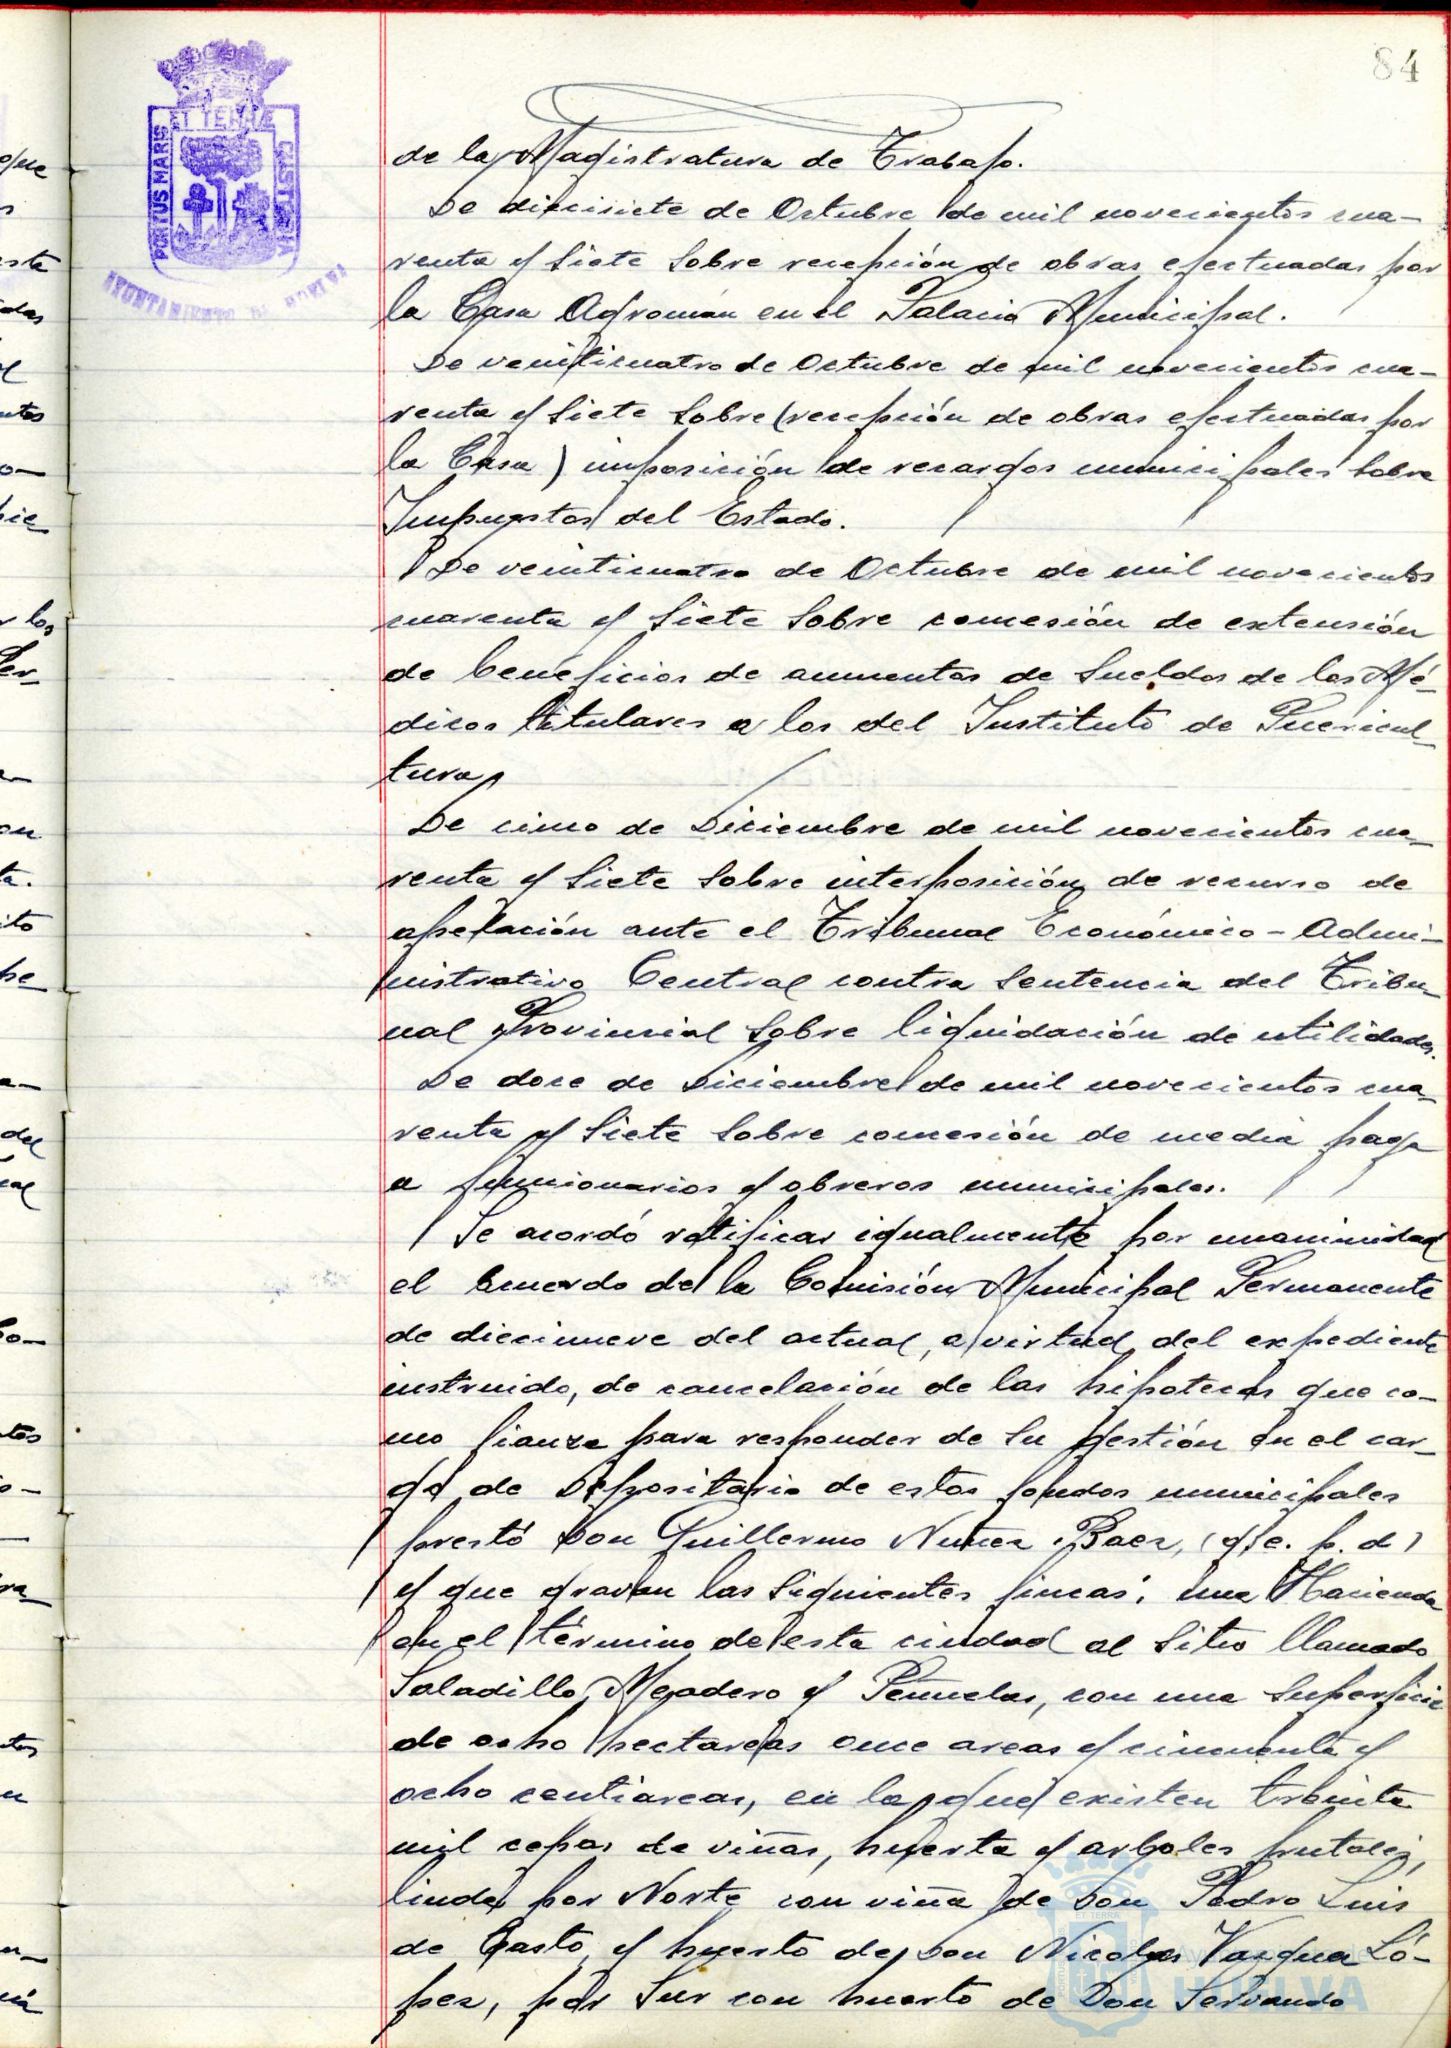 84
PORTUS MARIS ET TERRÆ CUSTODIA
AYUNTAMIENTO DE HUELVA
de la Magistratura de Trabajo.
De diecisiete de Octubre de mil novecientos cua-
renta y siete sobre recepción de obras efectuadas por
la Casa Agromán en el Palacio Municipal.
De veinticuatro de Octubre de mil novecientos cua-
renta y siete sobre (recepción de obras efectuadas por
la Casa) imposición de recargos municipales sobre
Impuestos del Estado.
De veinticuatro de Octubre de mil novecientos
cuarenta y siete sobre concesión de extensión
de beneficios de aumentos de sueldos de los Mé-
dicos titulares a los del Instituto de Puericul-
tura,
De cinco de Diciembre de mil novecientos cua-
renta y siete sobre interposición de recurso de
apelación ante el Tribunal Económico-Admi-
nistrativo Central contra sentencia del Tribu-
nal Provincial sobre liquidación de utilidades.
De doce de Diciembre de mil novecientos cua-
renta y siete sobre concesión de media paga
a funcionarios y obreros municipales.
Se acordó ratificar igualmente por unanimidad
el acuerdo de la Comisión Municipal Permanente
de diecinueve del actual, a virtud del expediente
instruido, de cancelación de las hipotecas que co-
mo fianza para responder de su gestión en el car-
go de Depositario de estos fondos municipales
prestó Don Guillermo Nuñez Baez, (q. e. p. d)
y que gravan las siguientes fincas: una Hacienda
en el término de esta ciudad al sitio llamado
Saladillo, Mojadero y Peñuelas, con una superficie
de ocho hectareas once areas y cincuenta y
ocho centiareas, en la que existen treinta
mil cepas de viñas, huerta y arboles frutales,
linda por Norte con viña de Don Pedro Luis
de Casto, y huerto de Don Nicolas Ló-
pez, por Sur con huerto de Don Servando
Ayuntamiento de
HUELVA